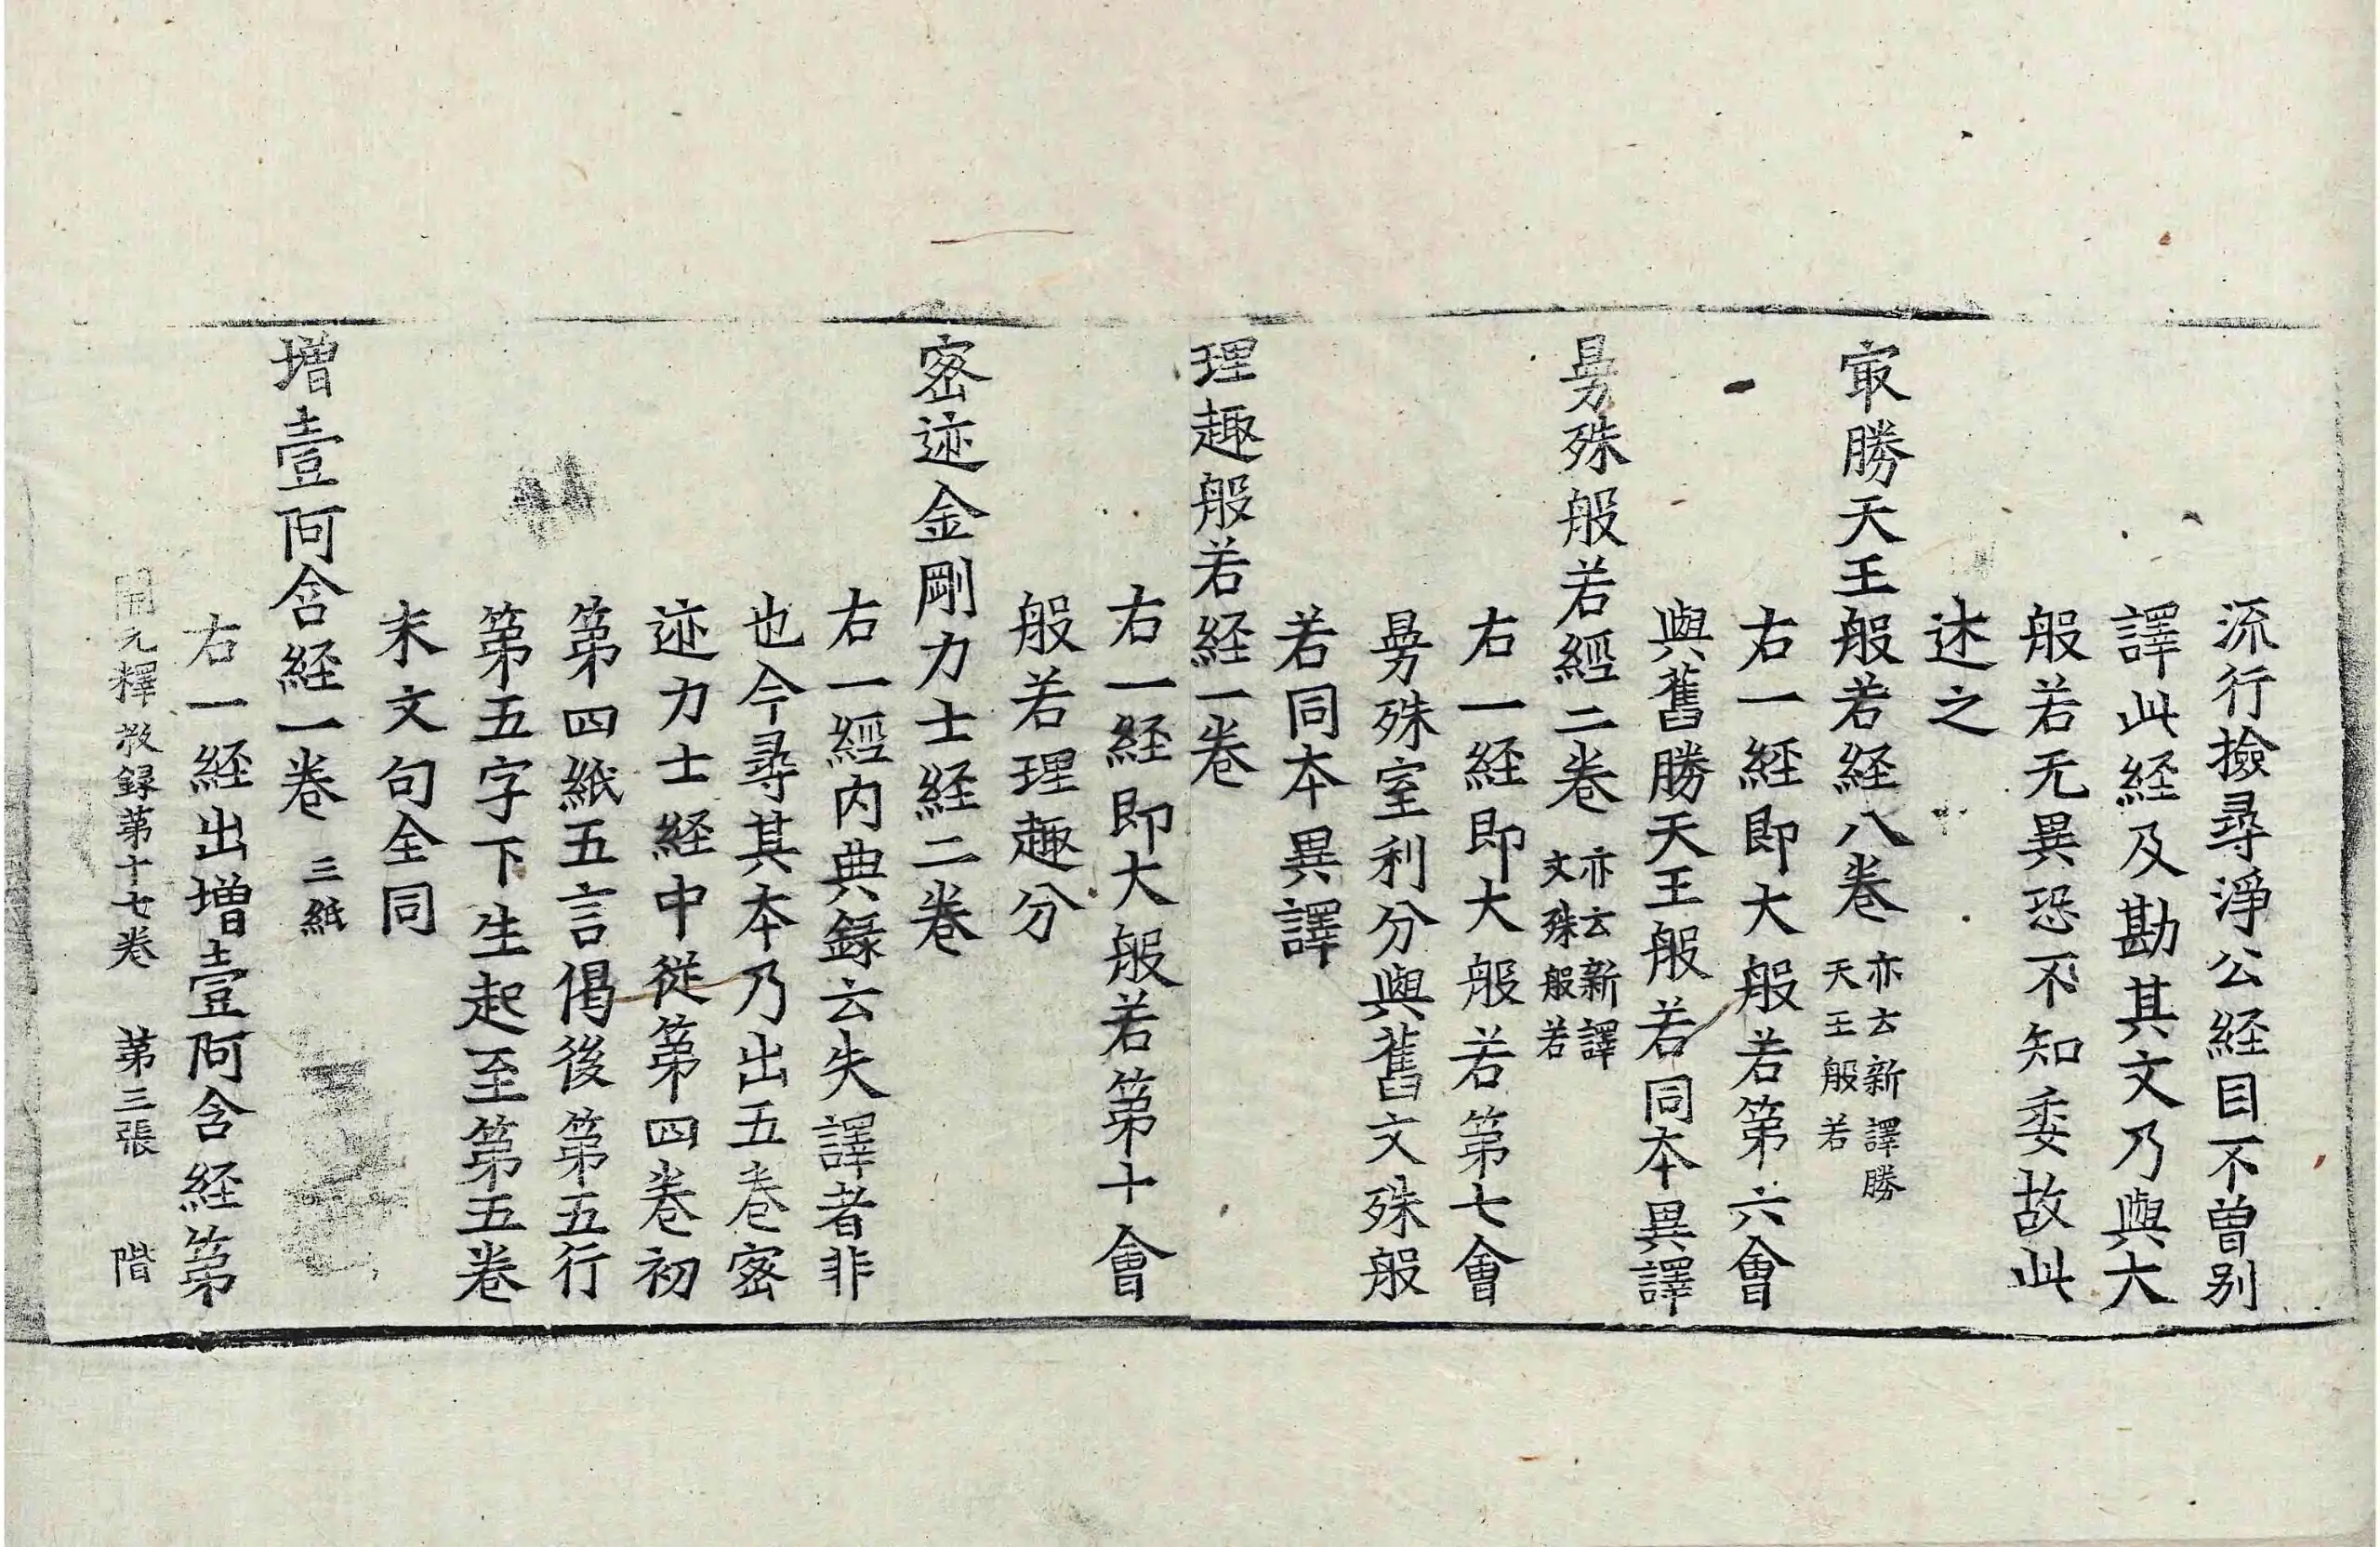 流行撿尋淨公経目不曽别
譯此経及勘其文乃與大
般若无異恐不知委故此
述之
㝡勝天王般若経八卷 亦云新譯勝天王般若
右一経即大般若第六會
與舊勝天王般若同本異譯
曼殊般若經二卷 亦云新譯文殊般若
右一経即大般若第七會
曼殊室利分與舊文殊般
若同本異譯
理趣般若経一卷
右一経即大般若第十會
般若理趣分
宻迹金剛力士経二卷
右一經内典録云失譯者非
也今尋其本乃出五卷宻
迹力士経中從第四卷初
第四紙五言偈後第五行
第五字下生起至第五卷
末文句全同
増壹阿含経一卷 三紙
右一経出増壹阿含経第
開元釋教録第十七卷 第三張 階